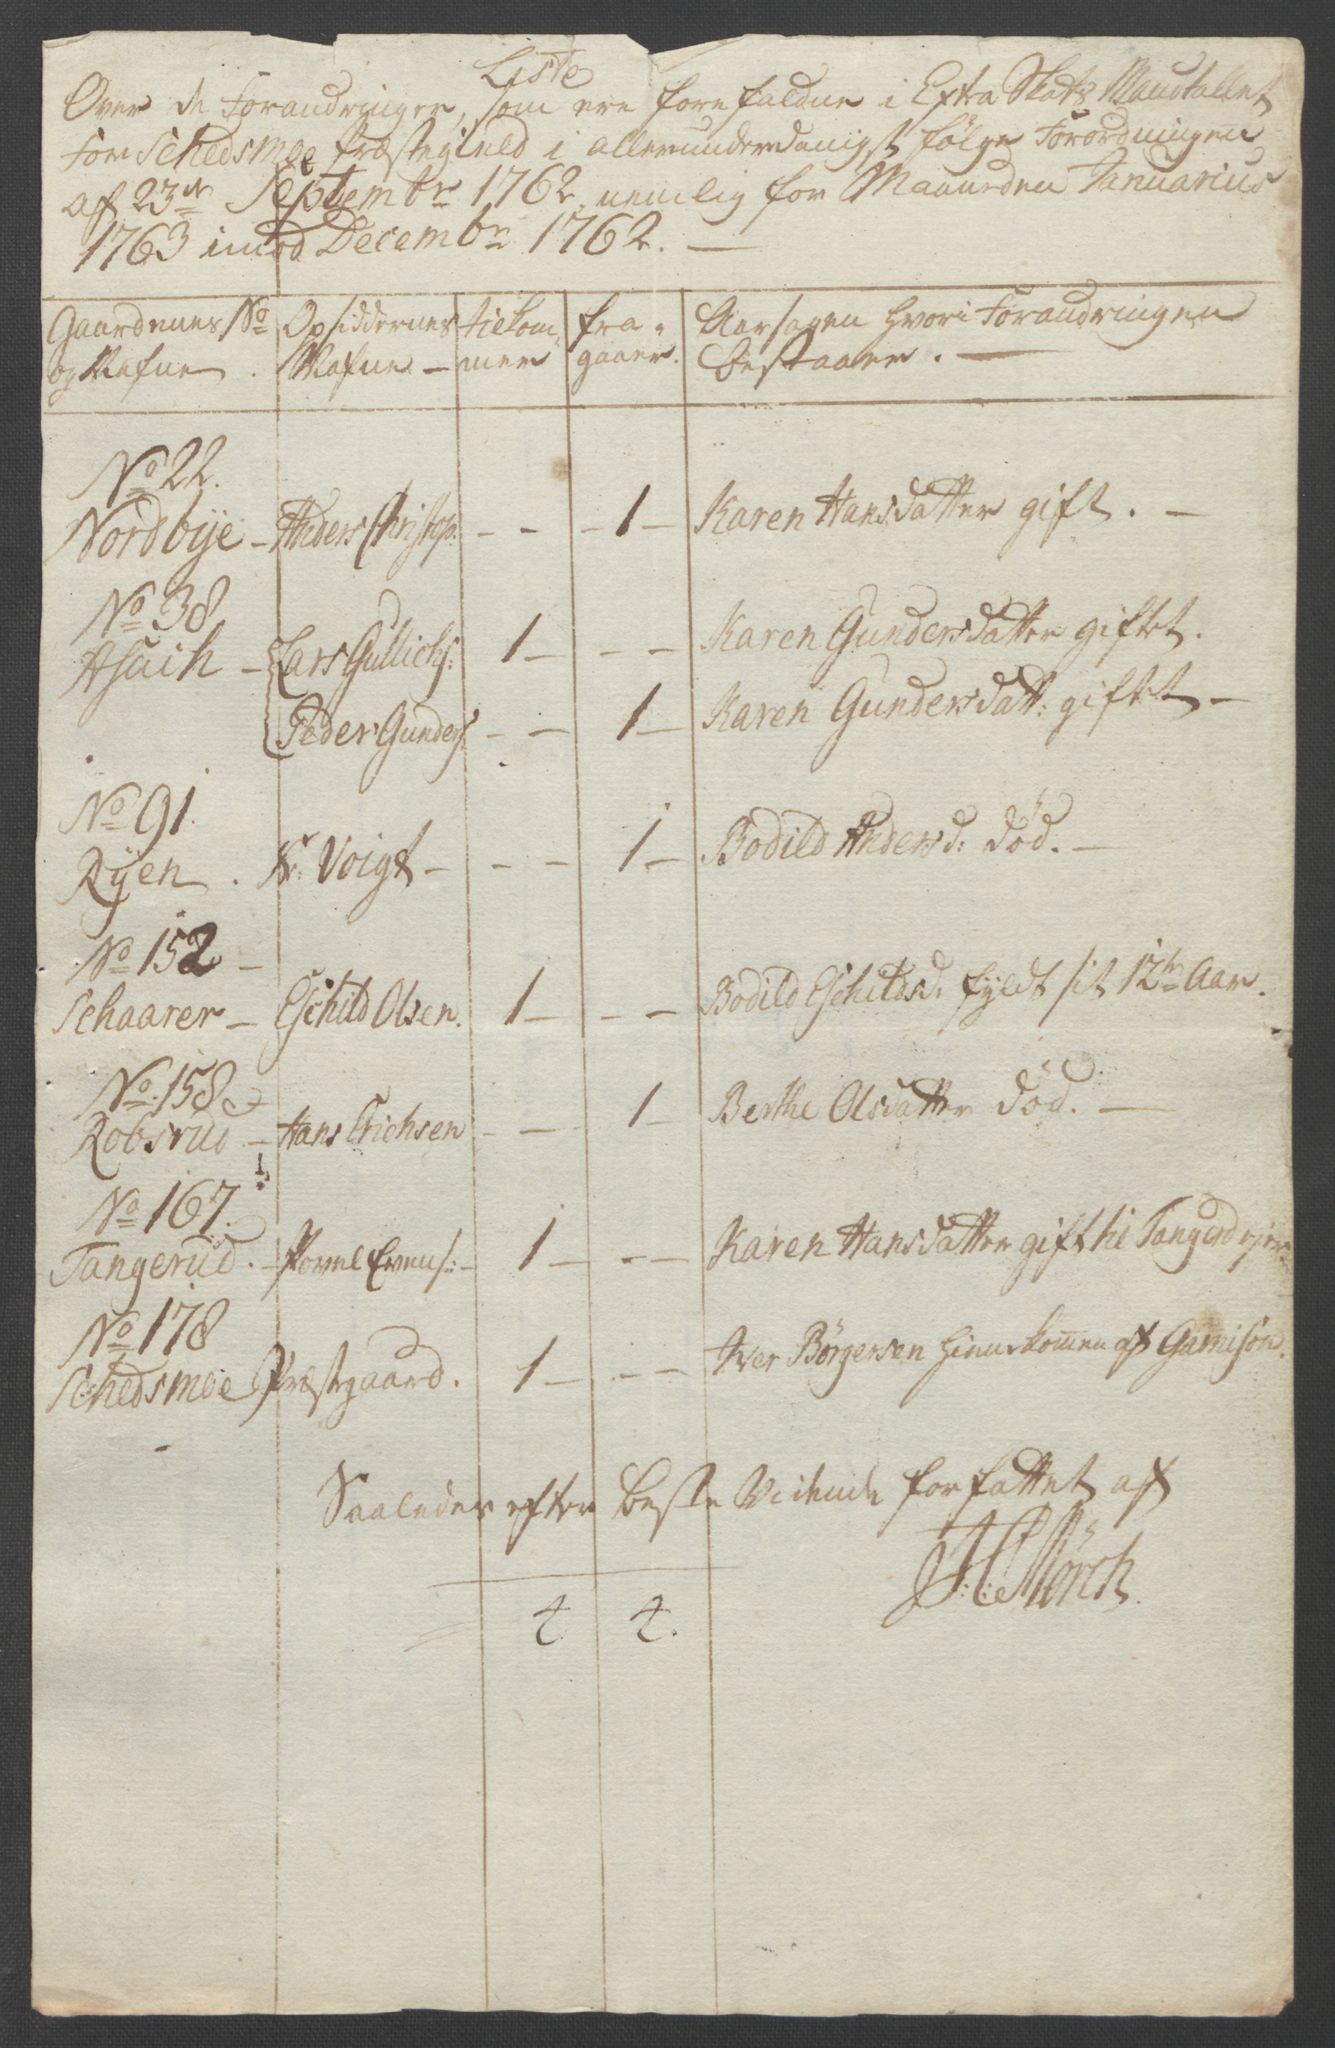 Liste
Over de Forandringer, som ere forefaldne i Extra Skatte Mandtallet
for Schedsmoe Præstegield i allerunderdanigst følge Forordningen
af 23de Septembr 1762, nemlig for Maaneden Januarius
1763 imod Decembr 1762. —
Gaardenes No Opsiddernes tiekom- fra- Aarsagen hvori Forandringen
og Nafne. Nafne — mer gaaer. bestaaer. —
No 22.
Nordbye — Anders Christop: - - - 1 — Karen Hansdatter gift. —
No 38
Asach — Lars Gullichs: 1 — - — Karen Gundersdatter giftet.
Peder Gunders: - — 1 — Karen Gundersdatt: giftet —
No 91.
Ryen. Hr: Voigt — - - — 1 — Bodild Andersd: død. —
No 152 —
Schaarer — Eschild Olsen. 1 — - — Bodild Eschildsd: fyldt sit 12te Aar.
No 158
Robsrud — Hans Erichsen - — 1 — Berthe Olsdatter død. —
No 167.
Tangerud. — Povel Evens: — 1 — - — Karen Hansdatter gift til Tangerud
No 178
Schedsmoe Præstegaard. 1 — - — Iver Börgersen hiemkommen af Garnison.
Saaledes efter beste Vidende forfattet af
J:H:Mörch.
4 4.